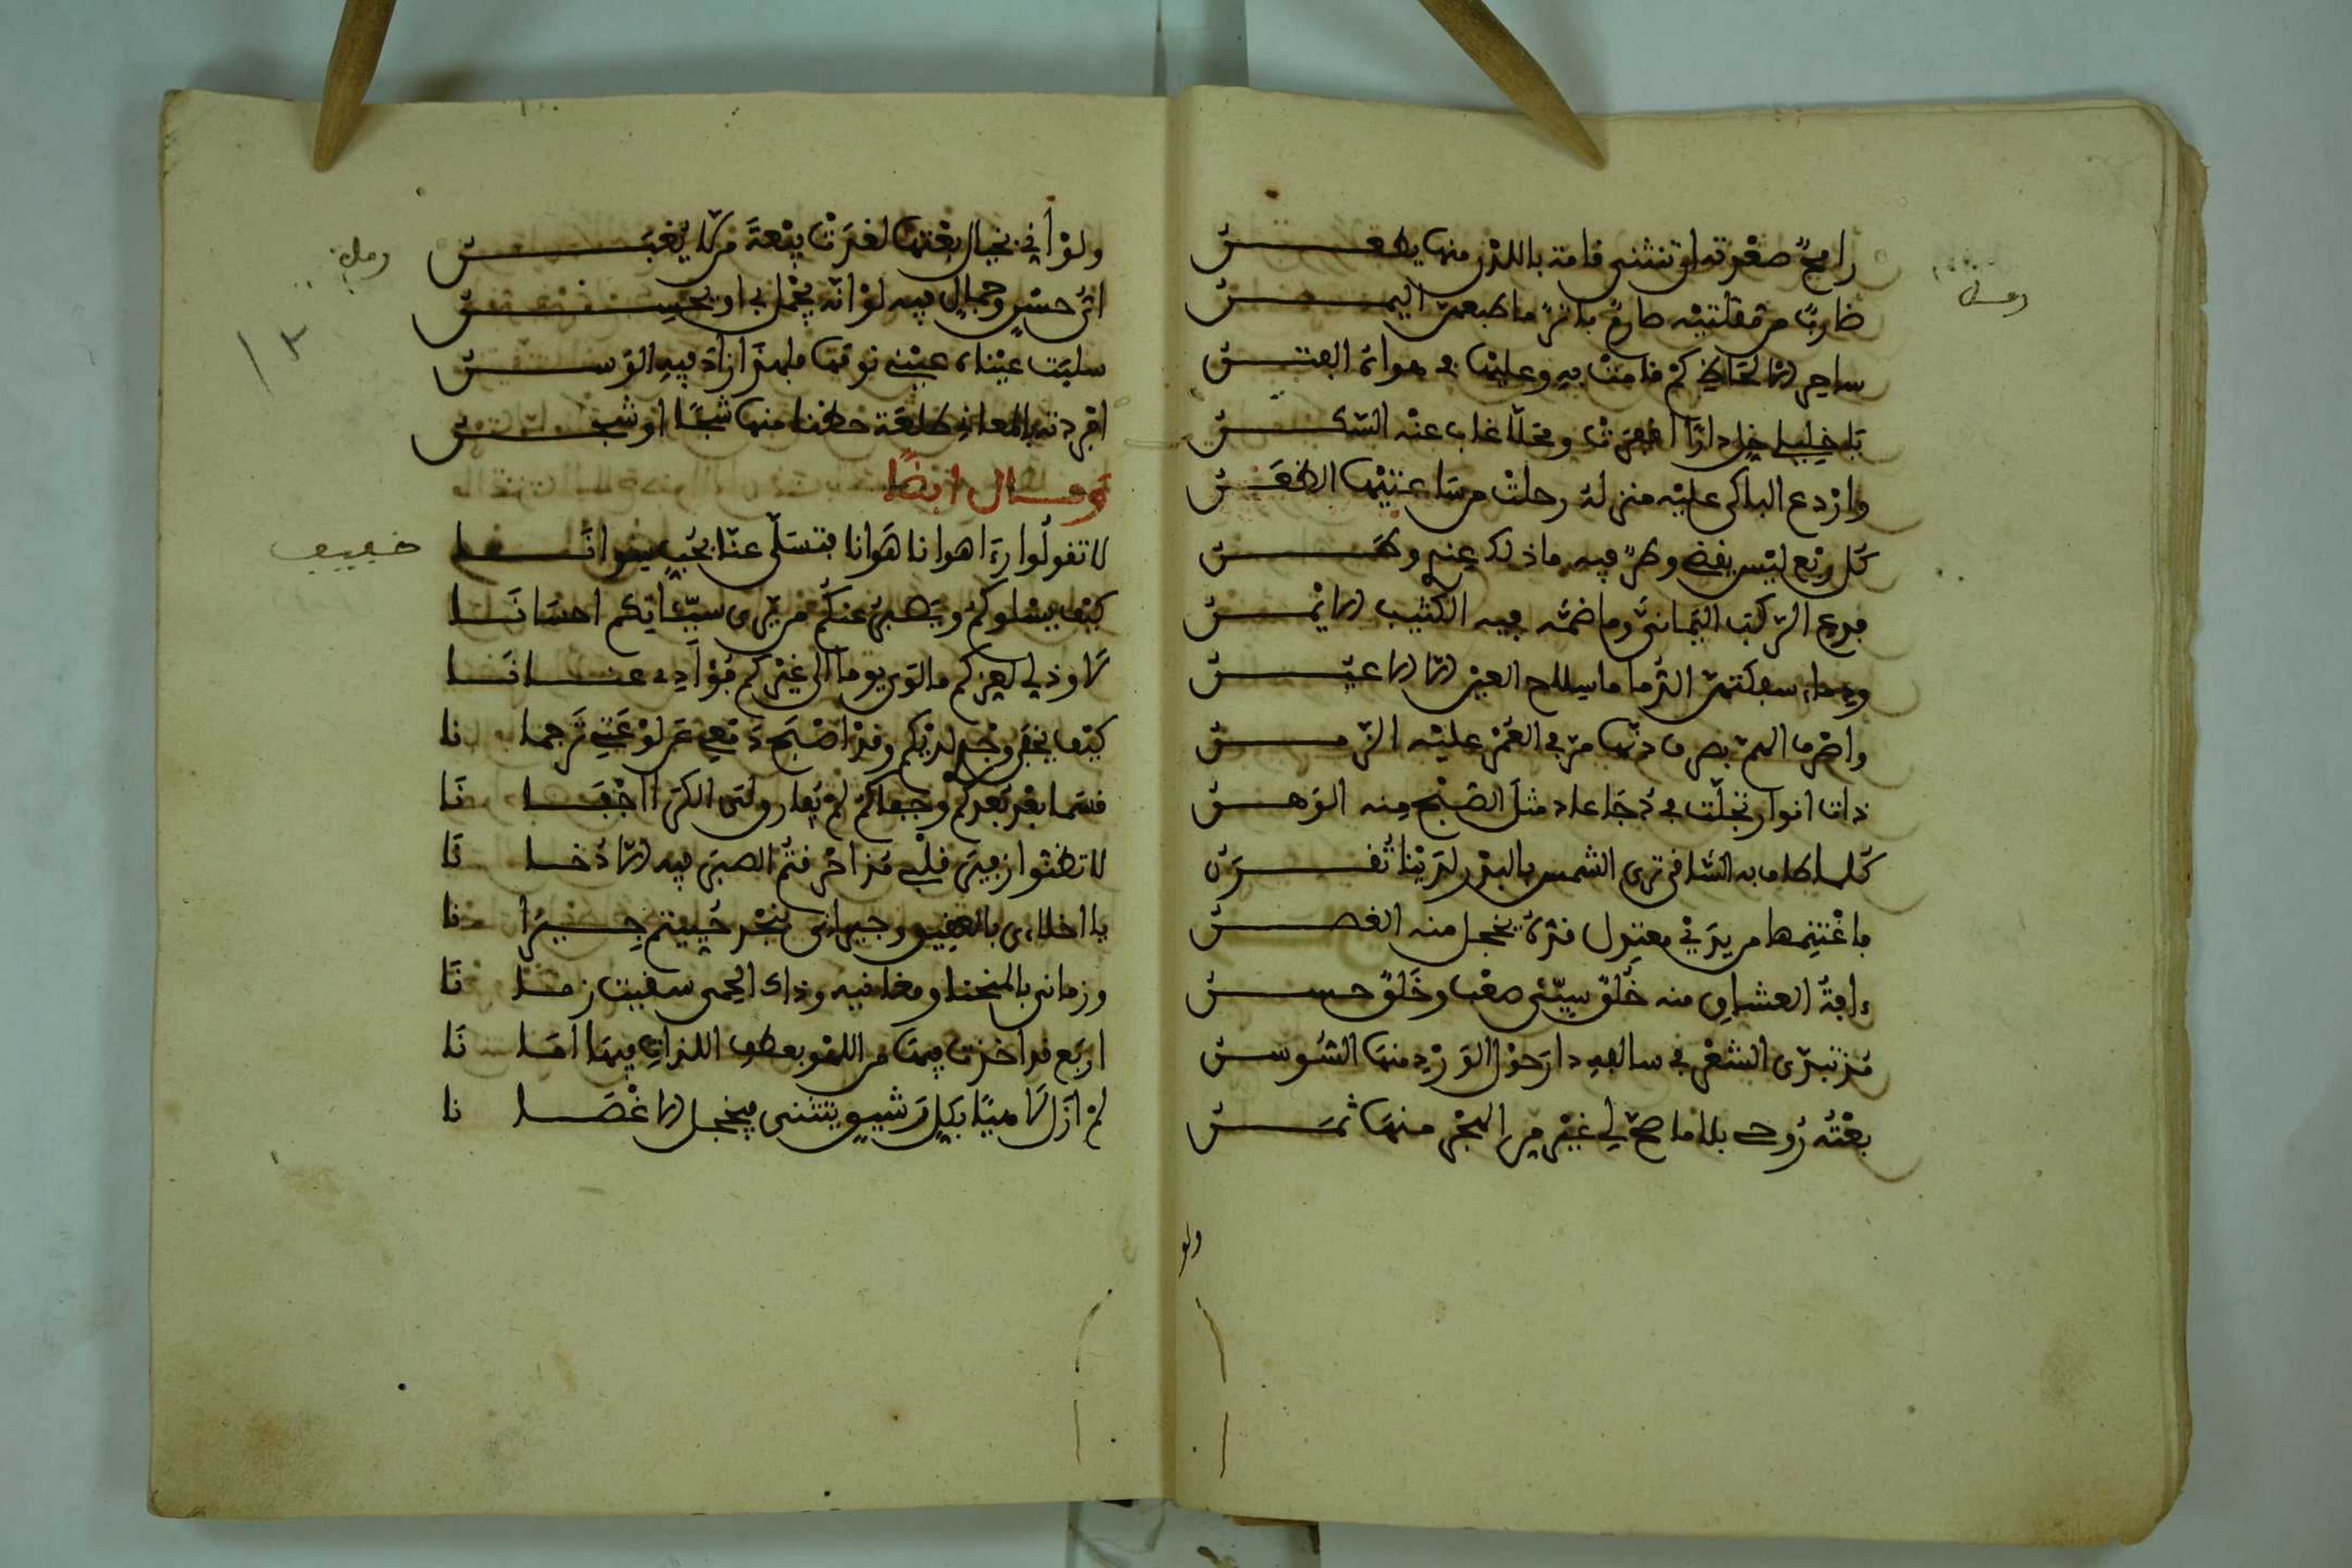 رامحٌ صعْدته او تنثنى قامة باللدن منها يطعن
ضاربٌ من مقلتيه صارمٌ باترٌ ما طبعته اليمن
ساحر الالحاظ كم قامت به وعليها في هواه الفتن
يا خليلي خل دارا اقفرت ومحلا غاب عنه السكن
واردع الباكي عليه منزلة رحلت من ساحتيها الظعن
كل ربْع ليْس يقضى وطرٌ فيه ما ذلك عندي وطن
فدع الركب اليماني وما ضمه فيه الكثيب الايمن
ودماء سفكتهن الدما ما سللج العين الا الاعين
واصْرف الهم بصرف دنها مر في العمْر عليْه الزمن
ذات انوار تجلّت في دجا عاد مثل الصّبْح منه الوهن
كلما طاف به الساقي ترى الشمس بالبدر لديْنا تقرن
فاغْتنمها من يديْ معتدل قده يخجل منه الغصن
ءافة العشاق منه خُلُقٌ سيّئى صعْب وخَلقٌ حسن
مذ تبدى الشعْر في سالفه دار حوْل الورْد منها السوسن
بعْته روحي بلا ما صح لي غيْر من الهجْر منها ثمن
ولو
رمل
ولوْ اني بخيال بعْتها لغدت بيْعة من لا يغبن
اىّ حسْن وجمال فيه لوْ انه يجمل بي او يحسن
سلبت عيْناه عيْني نوْمها فلهذا زاد فيه الوسن
افردته بالمعاني طلعة حظنا منها شجًا او شجن
رمل
وقال ايضًا
لا تقولوا رءا هوانا هَوانا فتسَلّى عنا بحُب سوانا
كيْف يسْلوكمُ ويصبر عنكمُ من يرى سيّئاتكم احسانا
لا وذلي لعزكم ما لوى يوما الى غيْركم فُؤادي عنانا
كيْف يخفى وجدي لديْكم وقد اصْبح دمعي عن لوْعتي ترجمانا
قسَما بعْد بُعدكم وجفاكم لم يُعاود لَى الكرى اجْفانا
لا تظنّوا ان بيْن قلْبي مذ احْرقتم الصبر فيه الا دخانا
يا اخلاءى بالعقيق وجيراني بنجْد حُييتم جيرانا
وزماني بالمنحنا ومغانيه وذاك الحمى سقيت زمانا
اربَع قد اخذت فيها من اللهْو بعطف اللذات فيها امانا
لم ازل لاهيًا بكل رشيق ينثنى فيخجل الاغْصانا
خفيف